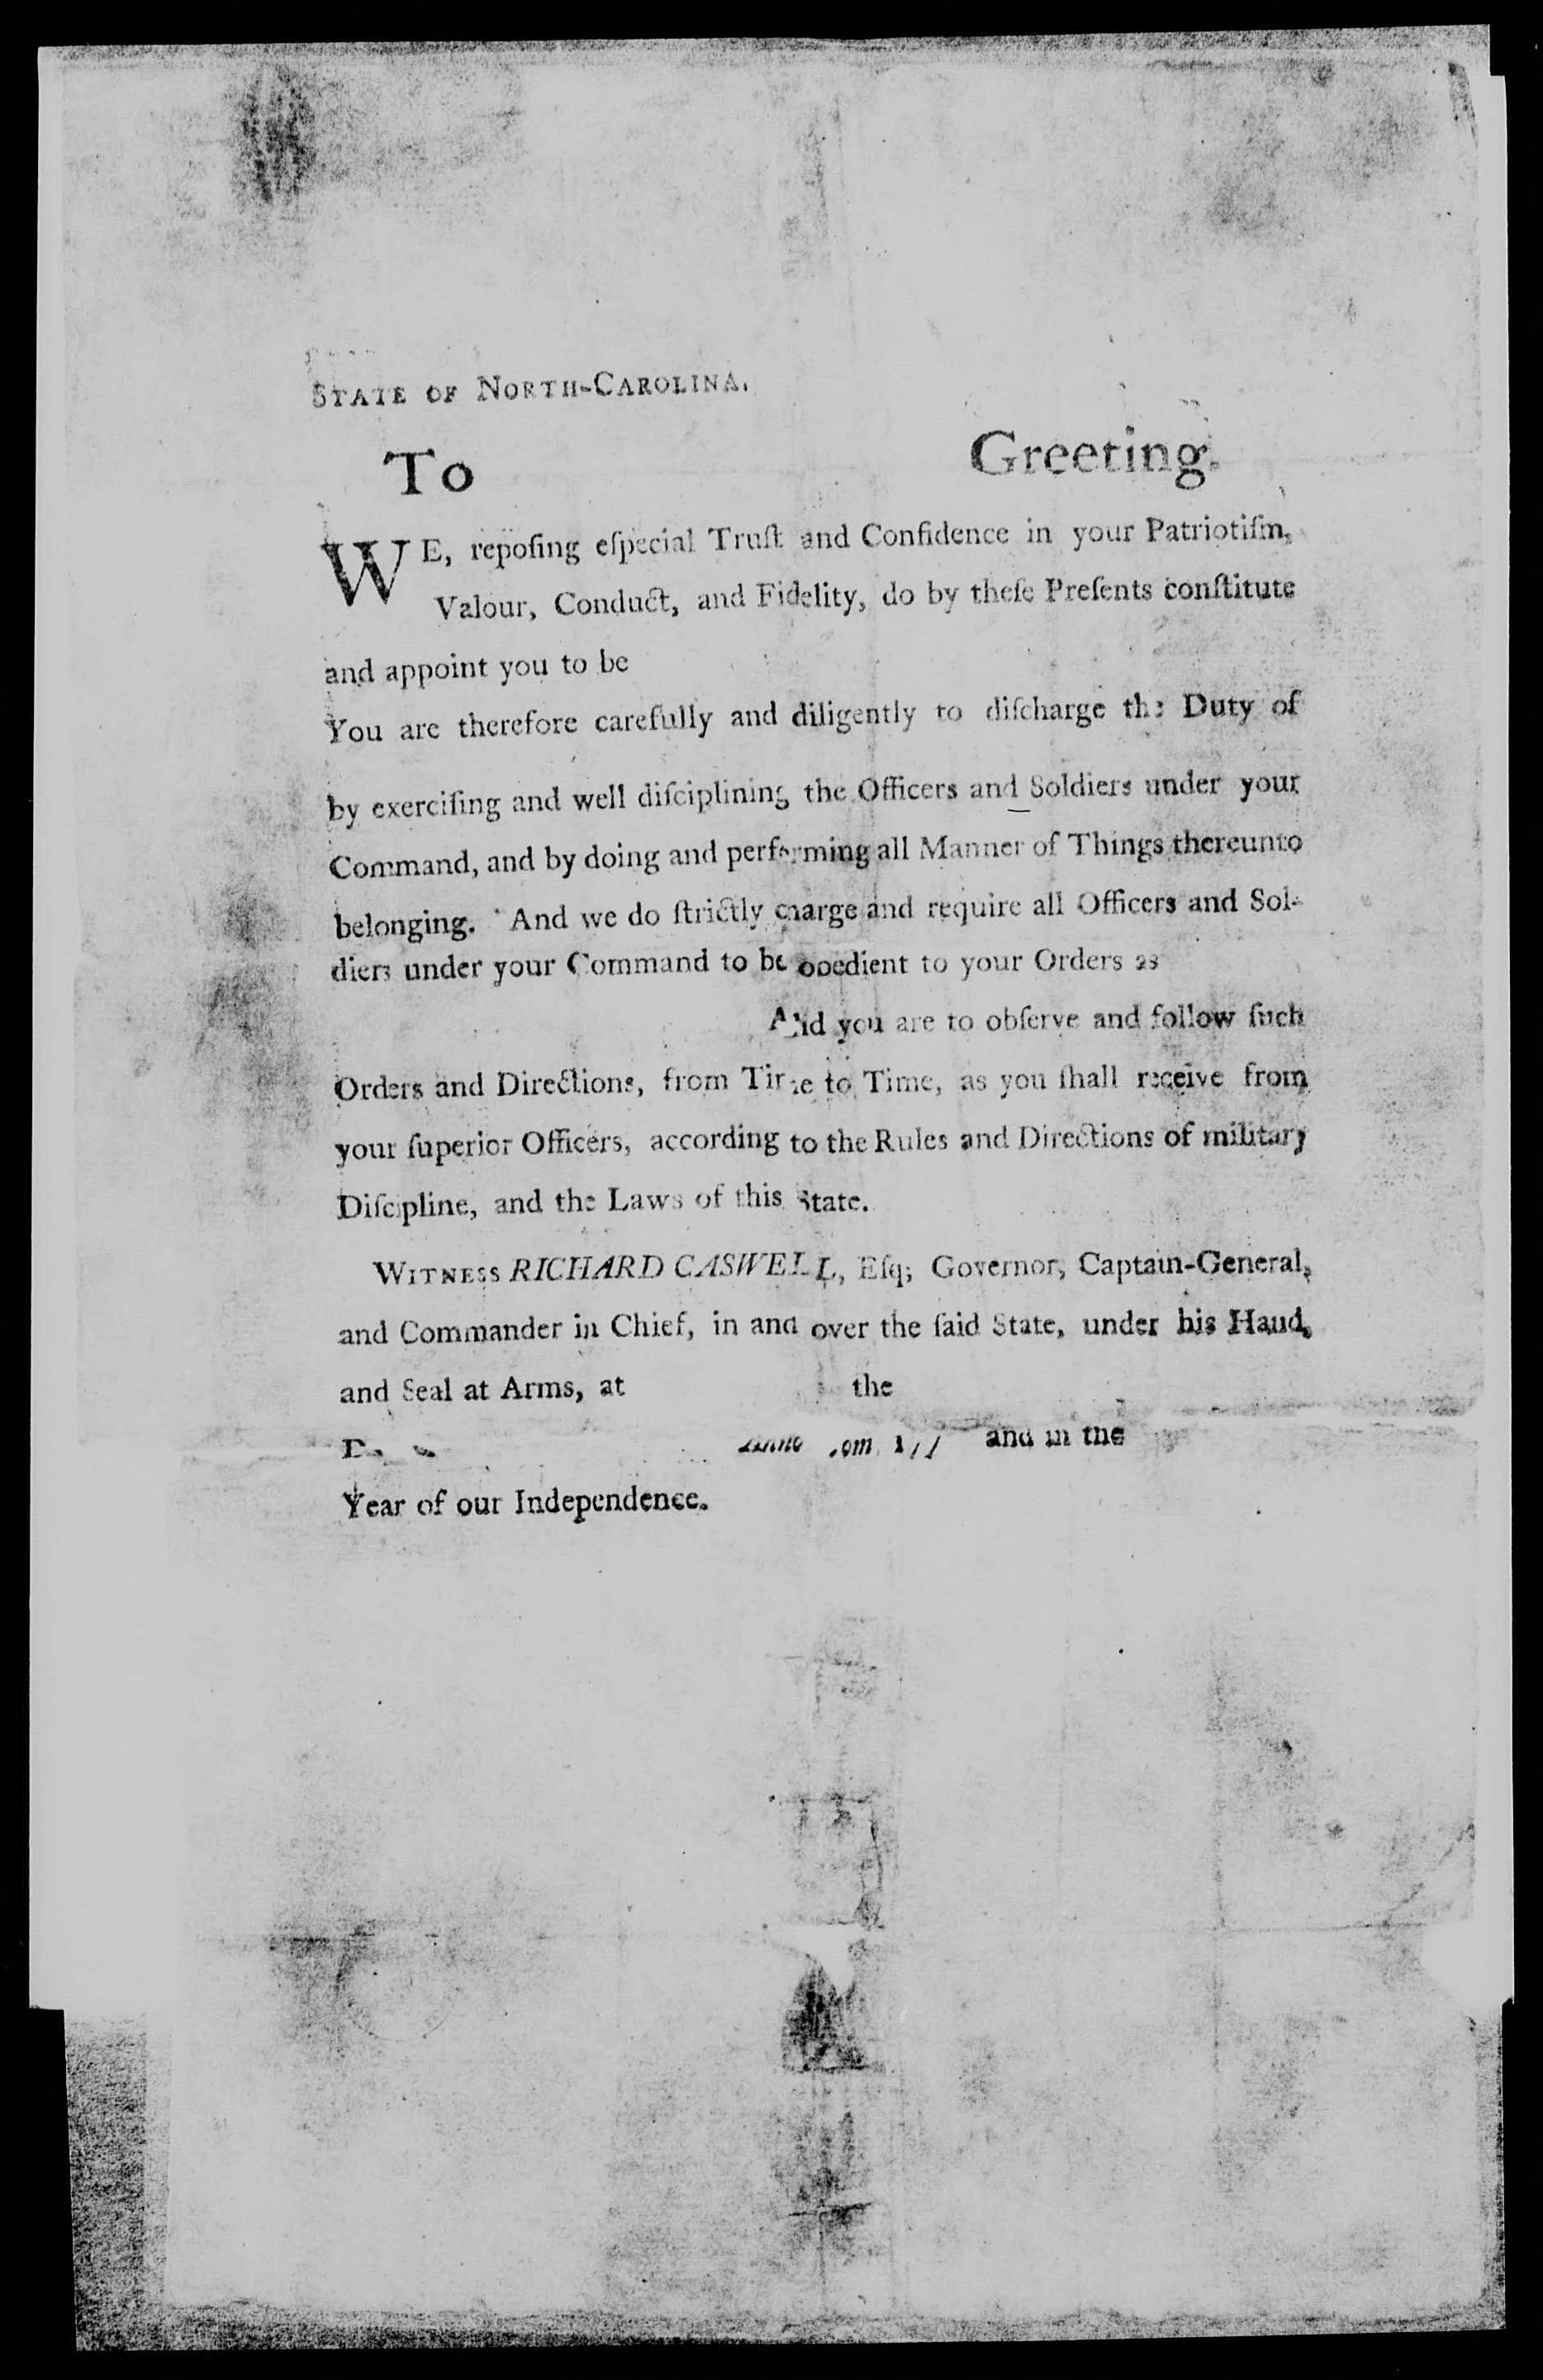 STATE OF NORTH-CAROLINA.
To Greeting.
WE, repoſing eſpecial Truſt and Confidence in your Patriotiſm,
Valour, Conduct, and Fidelity, do by theſe Preſents conſtitute
and appoint you to be
You are therefore carefully and diligently to diſcharge the Duty of
by exerciſing and well diſciplining the Officers and Soldiers under your
Command, and by doing and performing all Manner of Things thereunto
belonging. And we do ſtrictly charge and require all Officers and Sol-
diers under your Command to be obedient to your Orders as
And you are to obſerve and follow ſuch
Orders and Directions, from Time to Time, as you ſhall receive from
your ſuperior Officers, according to the Rules and Directions of military
Diſcipline, and the Laws of this State.
WITNESS RICHARD CASWELL, Eſq; Governor, Captain-General,
and Commander in Chief, in and over the ſaid State, under his Hand,
and Seal at Arms, at the
and in the
Year of our Independence.